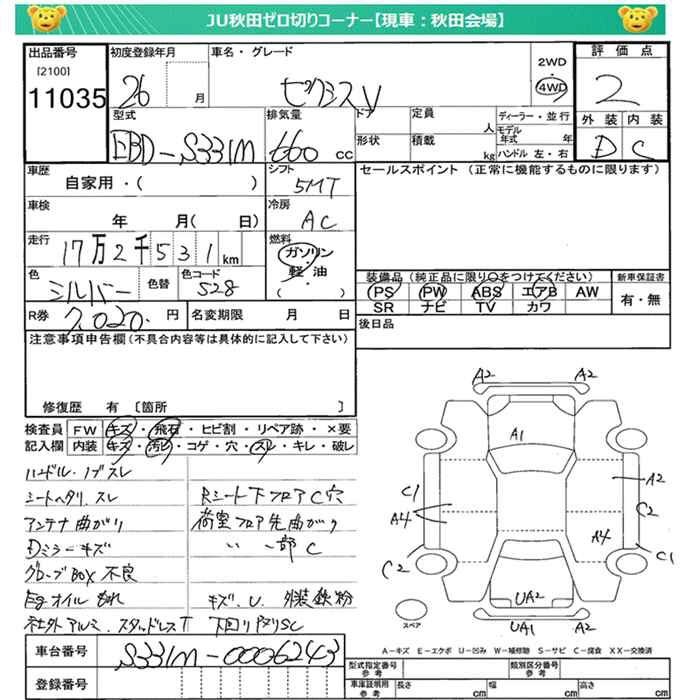 JU秋田ゼロ切りコーナー【現車：秋田会場】
出品番号
[2100]
11035
初度登録年月
26
月
車名・グレード
ゼクシスV
2WD
4WD
評価点
2
外装 内装
D C
型式
EBD-S331M
排気量
660 cc
ドア
形状
定員
人
積載
kg
ディーラー・並行
モデル年式
年
ハンドル 左・右
車歴
自家用・( )
シフト
5MT
セールスポイント (正常に機能するものに限ります)
車検
年 月( 日)
冷房
AC
走行
17万2千531km
燃料
ガソリン
・
軽油
( )
色
シルバー
色替
色コード
S28
装備品 (純正品に限り○をつけてください)
PS PW ABS エアB AW
SR ナビ TV カワ
新車保証書
有・無
R券
7,020.円
名変期限
月 日
後日品
注意事項申告欄(不具合内容等は具体的に記入して下さい)
修復歴 有 〔箇所 〕
検査員記入欄
FW キズ・飛石・ヒビ割・リペア跡・×要
内装 キズ・汚レ・コゲ・穴・スレ・キレ・破レ
ハンドル・ノブスレ
シートヘタリ、スレ
Rシート下フロアC穴
アンテナ曲がり
荷室フロア先曲がり
Dミラーキズ
〃 〃 一部C
グローブBOX不良
Egオイルもれ
キズ.U. 外装鉄粉
社外アルミ.スタッドレスT
下回りサビSC
A2 A2
A1
C1
A4
A2
C2
A4
C2
C1
UA2
UA1 A2
スペア
A-キズ E-エクボ U-凹み W-補修跡 S-サビ C-腐食 XX-交換済
車台番号
S331M-0006243
登録番号
型式指定番号
参考
類別区分番号
参考
車庫証明用
参考
長さ cm 幅 cm 高さ cm